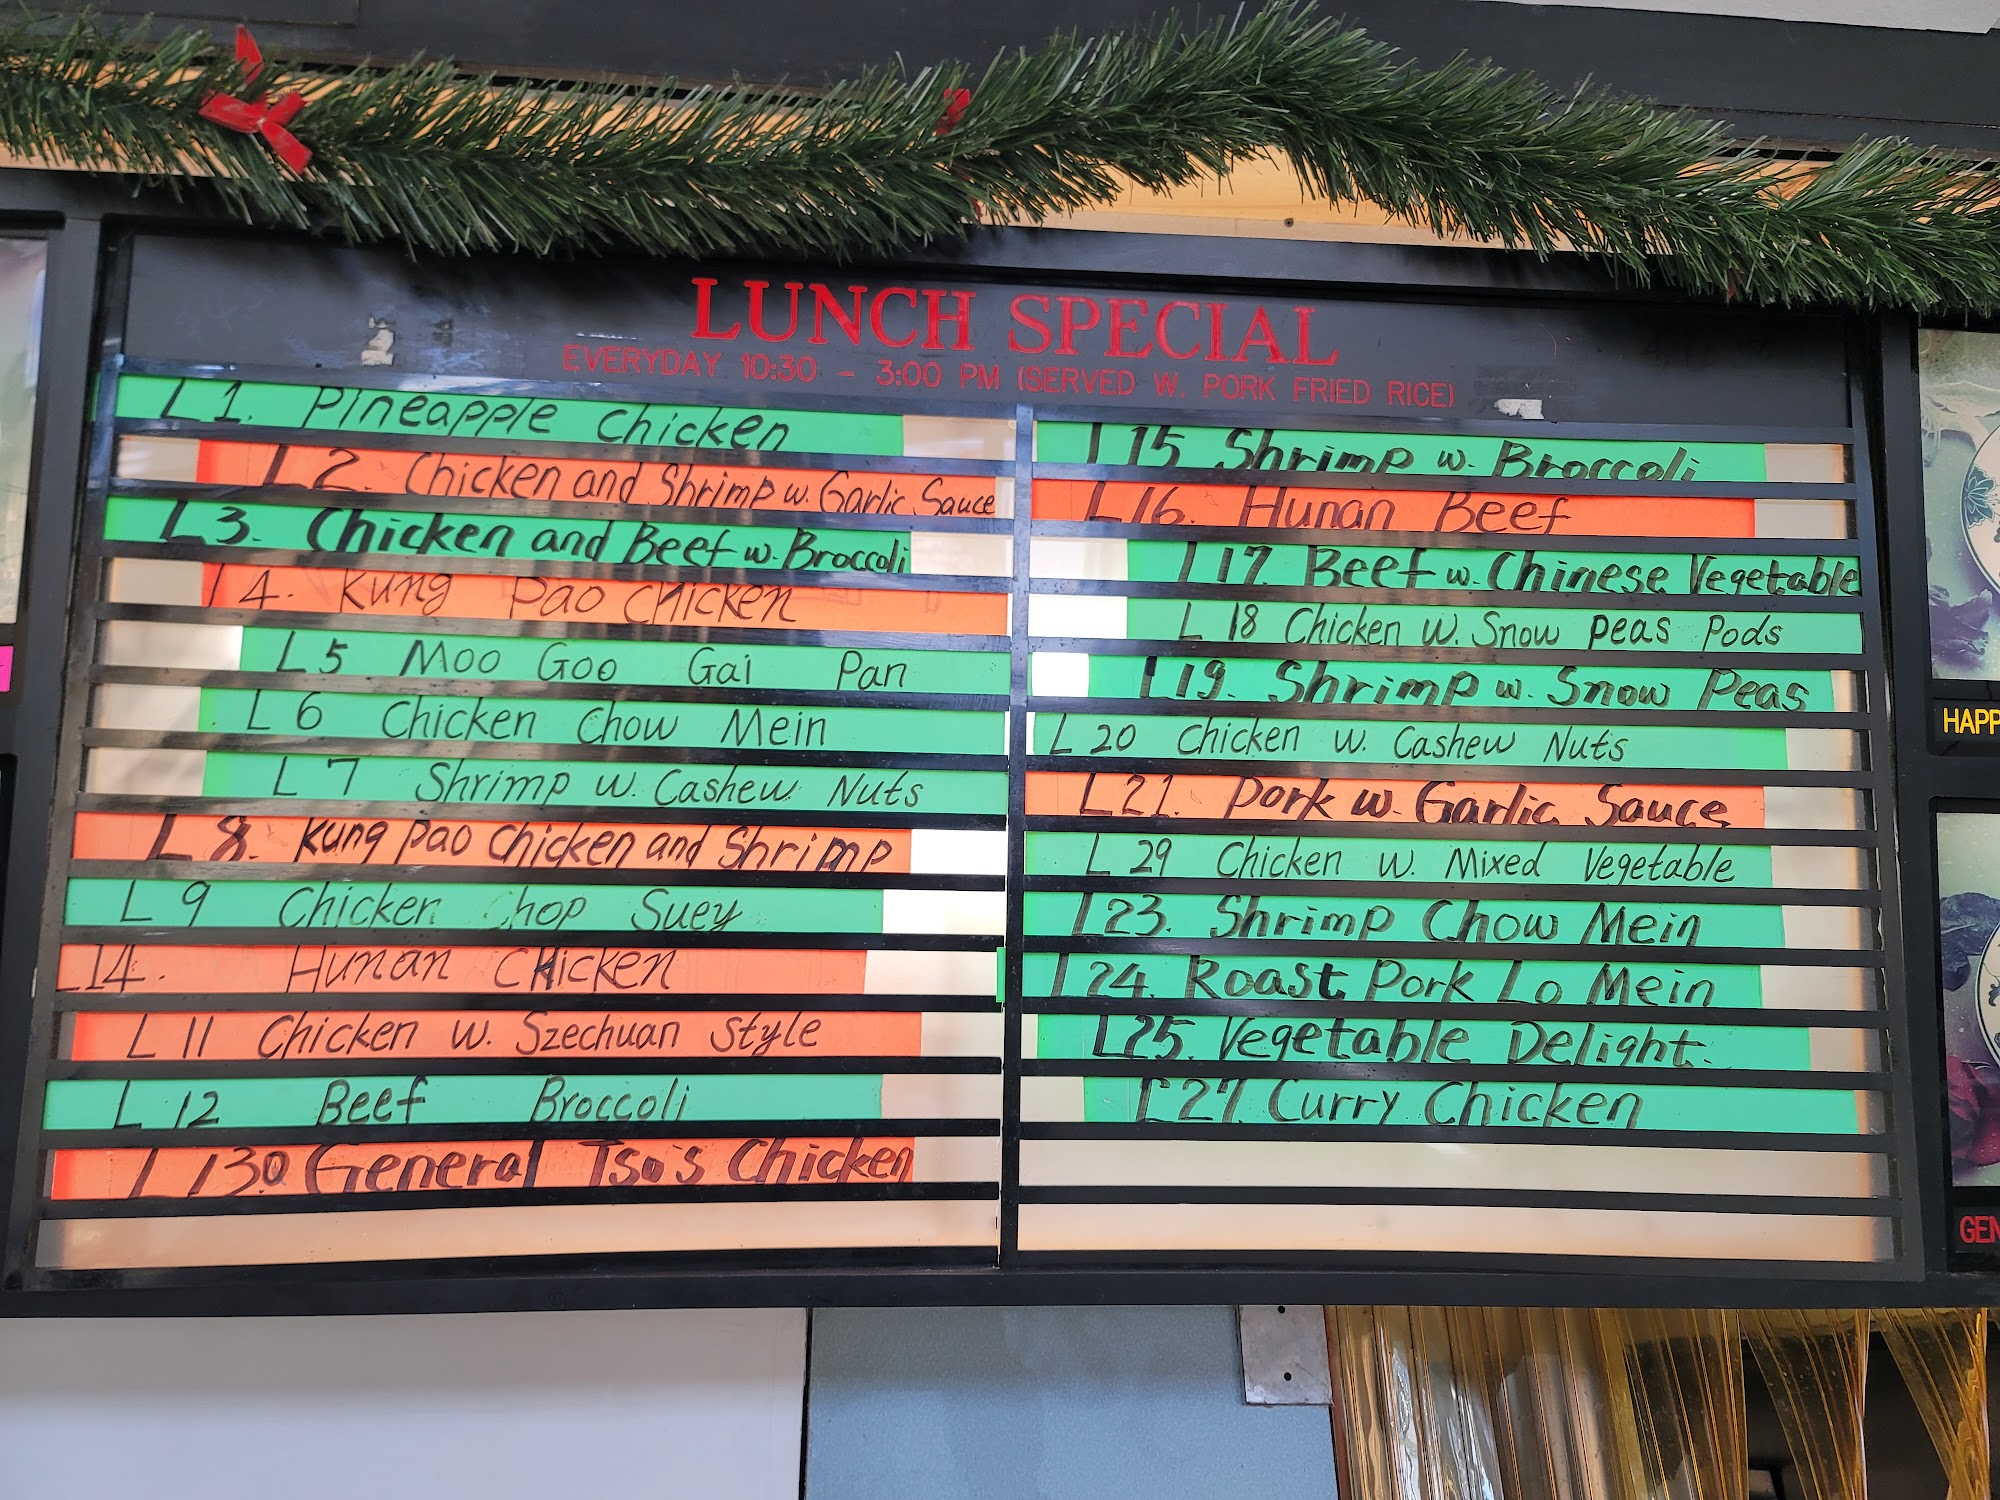 LUNCH SPECIAL
EVERYDAY 10:30 - 3:00 PM (SERVED W. PORK FRIED RICE)
L 1. Pineapple Chicken
L 2. Chicken and Shrimp w. Garlic Sauce
L 3. Chicken and Beef w. Broccoli
L 4. Kung Pao Chicken
L 5 Moo Goo Gai Pan
L 6 Chicken Chow Mein
L 7 Shrimp w. Cashew Nuts
L 8. Kung Pao Chicken and Shrimp
L 9 Chicken Chop Suey
L14. Hunan Chicken
L 11 Chicken w. Szechuan Style
L 12 Beef Broccoli
L 13. General Tso's Chicken
L15 Shrimp w. Broccoli
L16. Hunan Beef
L17. Beef w. Chinese Vegetable
L 18 Chicken w. Snow Peas Pods
L19. Shrimp w. Snow Peas
L 20 Chicken w. Cashew Nuts
L21. Pork w. Garlic Sauce
L 29 Chicken w. Mixed Vegetable
L23. Shrimp Chow Mein
L24. Roast Pork Lo Mein
L25. Vegetable Delight.
L27. Curry Chicken
HAPP
GEN